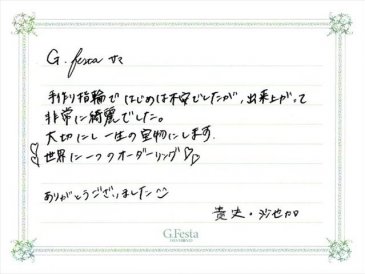 G. festa サマ
手作り指輪で はじめは不安でしたが、出来上がって
非常に綺麗でした。
大切にし 一生の宝物にします.
♡世界に一つのオーダーリング♡♡
ありがとうございました
貴史・沙也加
G.Festa